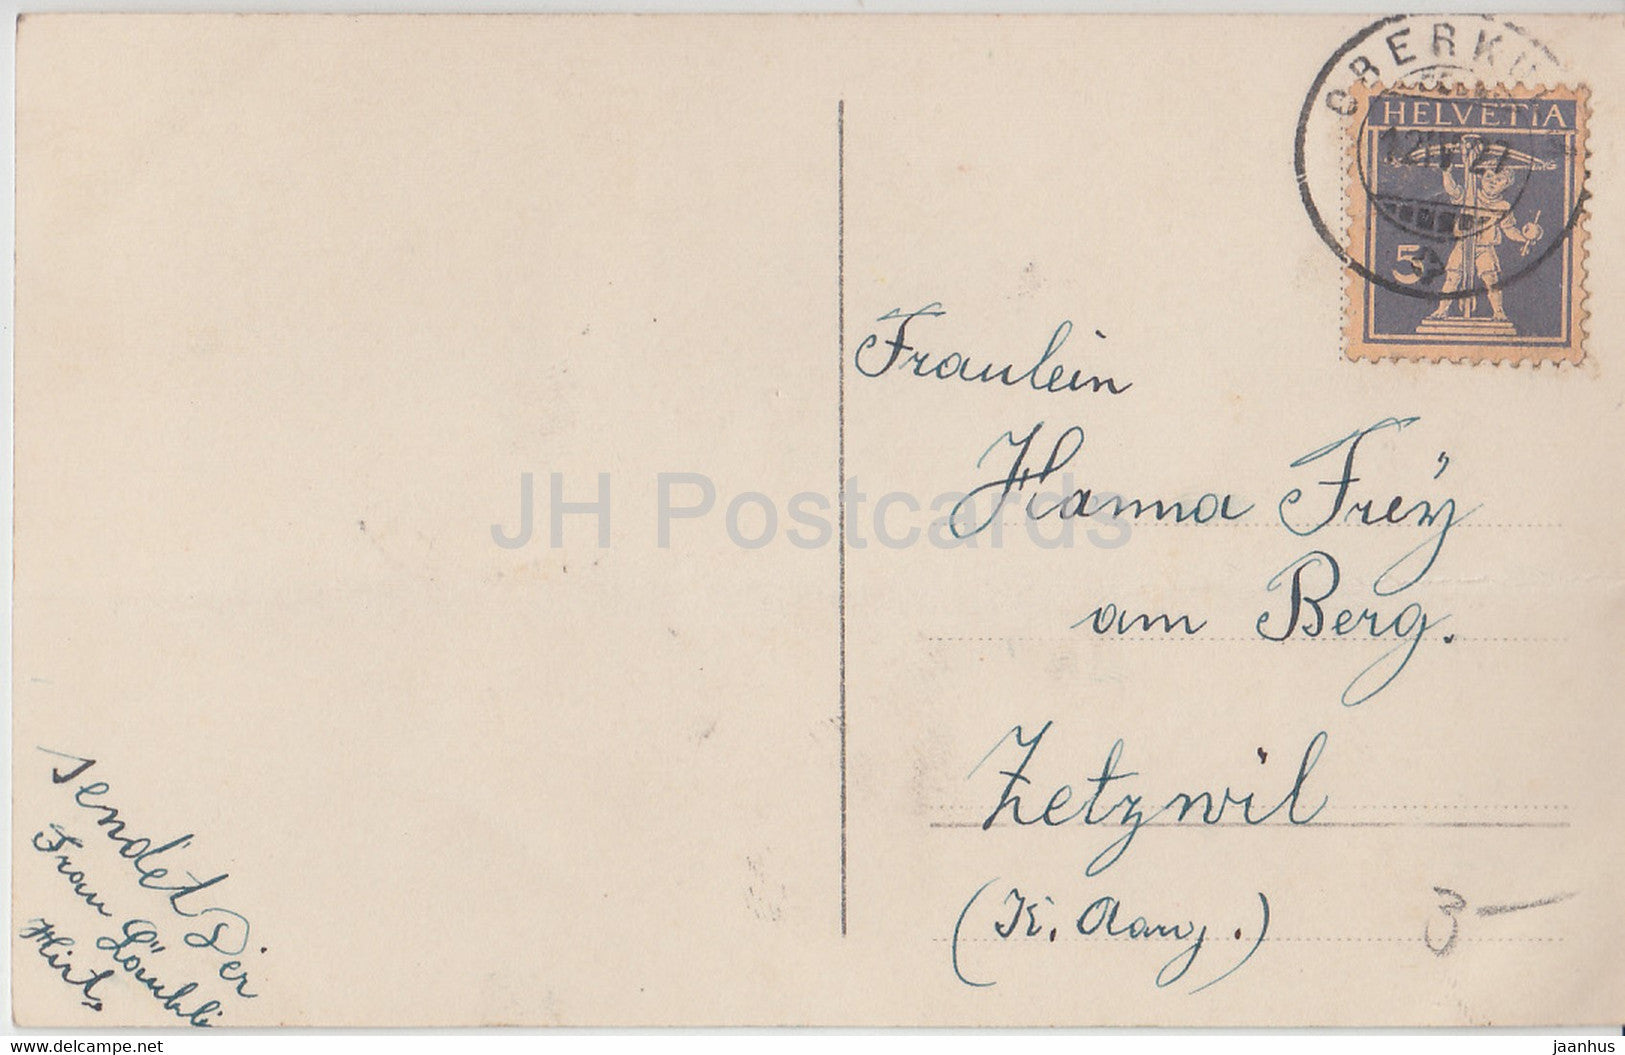 OBERKU
HELVETIA
12.IV.27
5
Fraulein
Hanna Frey
am Berg.
Zetzwil
(Kt. Aarg.)
3 —
sendet Dir
Frau
Hirt
JH Postcards
www.delcampe.net
jaanhus